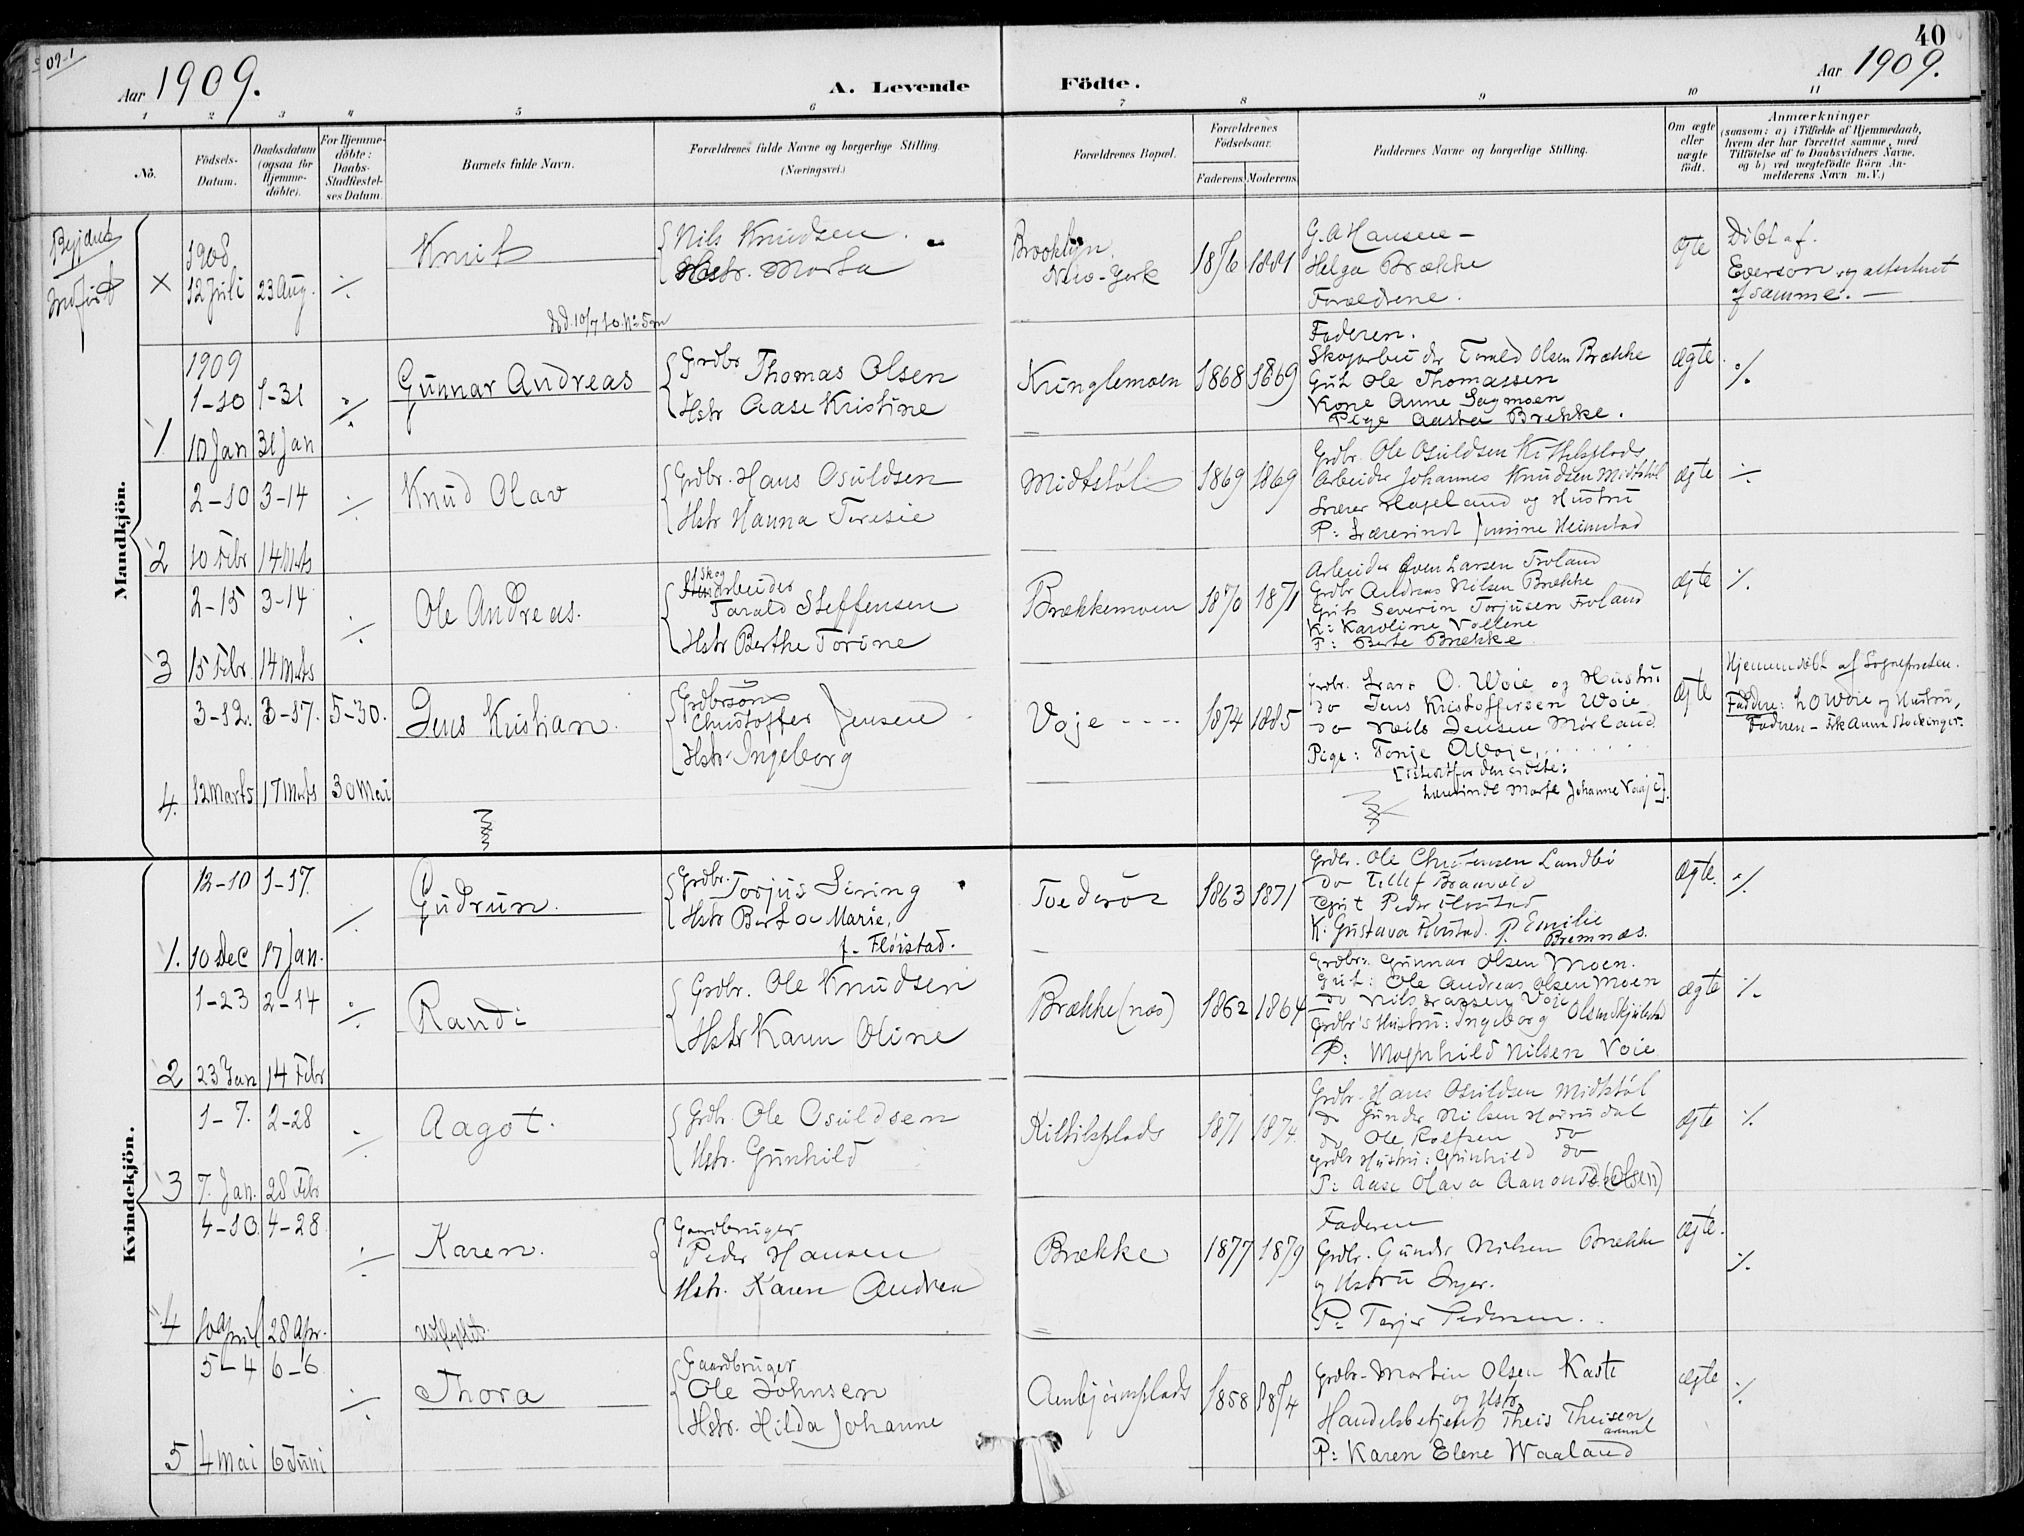 09-1
40
Aar 1909.
A. Levende Födte.
Aar 1909.
1 2 3 4 5 6 7 8 9 10 11
No.
Födsels-Datum.
Daabsdatum (ogsaa for Hjemmedöbte).
For Hjemmedöbte: Daabs-Stadfæstelses Datum.
Barnets fulde Navn.
Forældrenes fulde Navne og borgerlige Stilling.
(Næringsvei.)
Forældrenes Bopæl.
Forældrenes Födselsaar.
Faderens. Moderens.
Faddernes Navne og borgerlige Stilling.
Om ægte eller uægte födt.
Anmærkninger
(saasom: a) i Tilfælde af Hjemmedaab,
hvem der har forrettet samme, med
Tilföielse af to Daabsvidners Navne,
og b) ved uægtefödte Börn An-
melderens Navn m. V.)
Mandkjön.
Indført
×
1908
12 Juli 23 Aug. ./.
Knut
Nils Knudsen
Hstr. Marta
Brooklyn
New-York
1876 1881
G. A Hansen -
Helga Brække
Forældrene.
ægte
Døbt af
Everson og attesteret
af samme. -
død 10/7 10. No 5 m
1909
1-10 1-31 ./.
Gunnar Andreas
Grdbr Thomas Olsen
Hstr Aase Kristine
Kringlemoen
1868 1869
Faderen.
Skogarbeider Torald Olsen Brække
Gut Ole Thomassen
Kone Anne Sagmoen
Pige Aasta Brekke.
ægte
./.
1 10 Jan 31 Jan
2-10 3-14 ./.
Knud Olav
Grdbr. Hans Osuldsen
Hstr Hanna Teresie
Midtstøl
1869 1869
Grdbr. Ole Osuldsen Kittilsplads
Arbeider Johannes Knudsen Midtstøl
Lærer Hageland og Hustru
P: Lærerinde Jensine Heimstad
ægte
./.
2 10 Febr 14 Mrts
2-15 3-14 ./.
Ole Andreas.
Skogarbeider
Tarald Steffensen
Hstr Berthe Torine
Brækkemoen
1870 1871
Arbeider Even Larsen Froland
Grdbr Andreas Nilsen Brække
Gut Severin Torjusen Froland
K: Karoline Vollene
P: Berte Brække
ægte
./.
3 15 Febr. 14 Mrts
3-12. 3-17. 5-30.
Jens Kristian.
Grdbrsøn
Christoffer Jensen
Hstr. Ingeborg
Voje ----
1874 1885
Grdbr. Lars O. Woie og Hustru
do Jens Kristoffersen Woie
do Neils Jensen Mørland
Pige: Tonje A Woje.
[istedtfor den sidste:
Lærerinde Marte Johanne Vaaje].
ægte
Hjemmedøbt af Sognepresten.
Faddere: L O Woie og Hustru,
Faderen - Frk Anna Stockinger.
4. 12 Marts 17 Mrts 30 Mai
Kvindekjön.
12-10 1-17. ./.
Gudrun.
Grdbr. Torjus Siring
Hstr Berthe Marie,
f. Fløistad.
1863 1871
Grdbr. Ole Christensen Landbø
do Tellef Braavold
Gut Peder Fløistad
K. Gustava Fløistad. P. Emilie
Bremnæs.
ægte.
./.
1. 10 Dec 17 Jan.
1-23 2-14 ./.
Randi
Grdbr. Ole Knudsen
Hstr Karen Oline
Brække (næs)
1862 1864
Grdbr. Gunnar Olsen Moen.
Gut: Ole Andreas Olsen Moen
do Nils Larsen Voie
Grdbr's Hustru: Ingeborg Olsen Skjulestad
P: Magnhild Nilsen Voie
ægte
./.
2 23 Jan 14 Febr
1-7. 2-28 ./.
Aagot.
Grdb. Ole Osuldsen
Hstr. Gunhild
Kittilsplads
1871 1874.
Grdbr. Hans Osuldsen Midtstøl
do Gunder Nilsen
do Ole Rolfsen do
Grdbr Hustru: Gunhild do
P: Aase Olava Aanonsd. (Olsen)
ægte
./.
3 7. Jan. 28 Febr
4-10. 4-28 ./.
Karen.
Gaardbruger
Peder Hansen
Hstr. Karen Andrea
Brække
1877 1879
Faderen
Grdbr. Gunder Nilsen Brække
og Hstru Inger.
P: Terjer Pedersen.
ægte.
./.
4 10 April 28 Apr.
udflyttet.
5-4 6-6 ./.
Thora
Gaardbruger
Ole Johnsen
Hstr. Hilda Johanne
Anbjørnsplads
1858 1874
Grdbr. Martin Olsen Kaste
og Hstr.
Handelsbetjent Theis Theisen
P: Karen Elene Waaland
ægte
./.
5 4 Mai 6 Juni